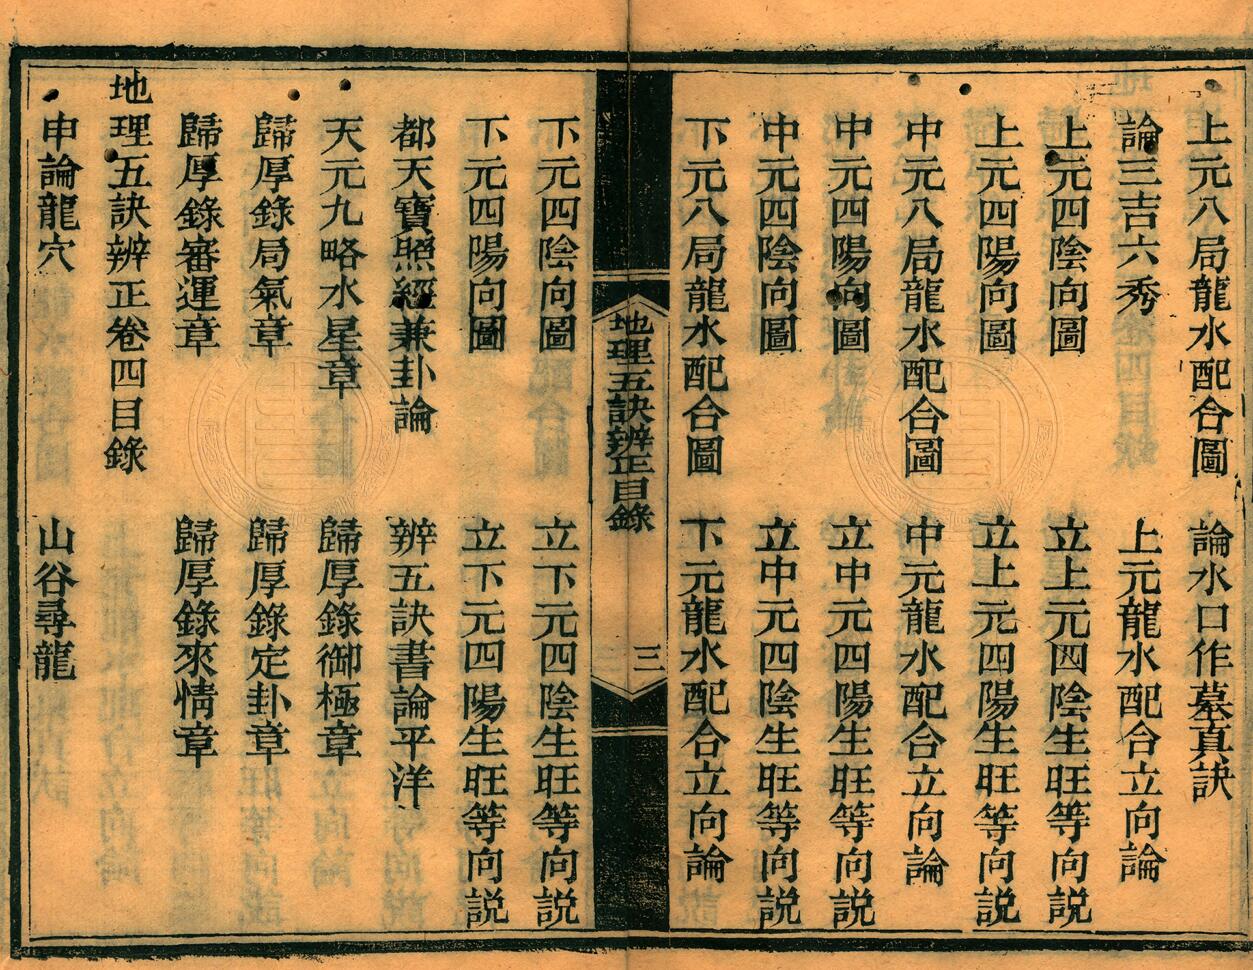 上元八局龍水配合圖　論水口作墓真訣
論三吉六秀　上元龍水配合立向論
上元四陰向圖　立上元四陰生旺等向説
上元四陽向圖　立上元四陽生旺等向説
中元八局龍水配合圖　中元龍水配合立向論
中元四陽向圖　立中元四陽生旺等向説
中元四陰向圖　立中元四陰生旺等向説
下元八局龍水配合圖　下元龍水配合立向論
地理五訣辨正目錄　三
下元四陰向圖　立下元四陰生旺等向説
下元四陽向圖　立下元四陽生旺等向説
都天寶照經兼卦論　辨五訣書論平洋
天元九略水星章　歸厚錄御極章
歸厚錄局氣章　歸厚錄定卦章
歸厚錄審運章　歸厚錄來情章
地理五訣辨正卷四目錄
申論龍穴　山谷尋龍